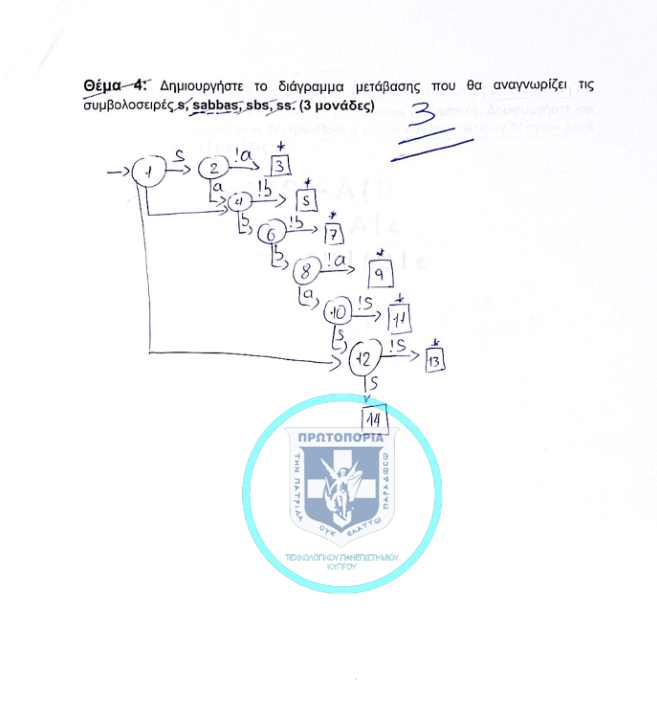 Θέμα 4: Δημιουργήστε το διάγραμμα μετάβασης που θα αναγνωρίζει τις
συμβολοσειρές s, sabbas, sbs, ss. (3 μονάδες)
3
1 s 2 !a 3 *
a 4 !b 5 *
b 6 !b 7 *
b 8 !a 9 *
a 10 !s 11 *
s 12 !s 13 *
s
14
ΠΡΩΤΟΠΟΡΙΑ
ΤΗΝ ΠΑΤΡΙΔΑ ΟΥΚ ΕΛΑΤΤΩ ΠΑΡΑΔΩΣΩ
ΤΕΧΝΟΛΟΓΙΚΟΥ ΠΑΝΕΠΙΣΤΗΜΙΟΥ
ΚΥΠΡΟΥ